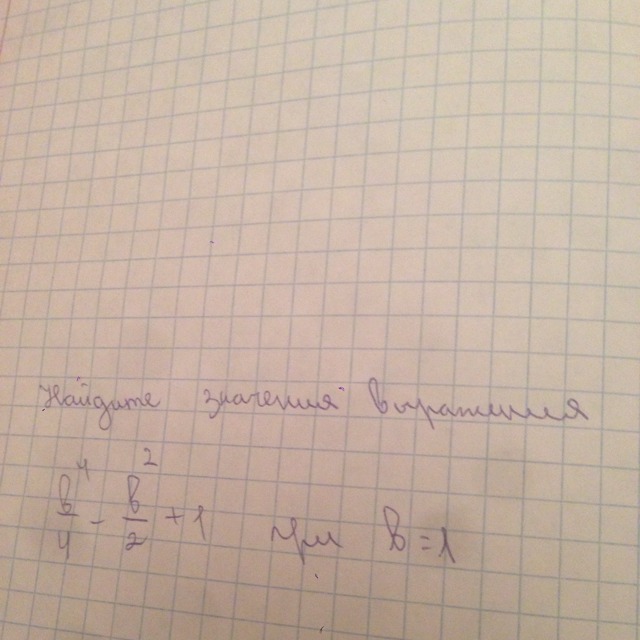 Найдите значения выражения
b⁴/4 - b²/2 + 1 при b = 1